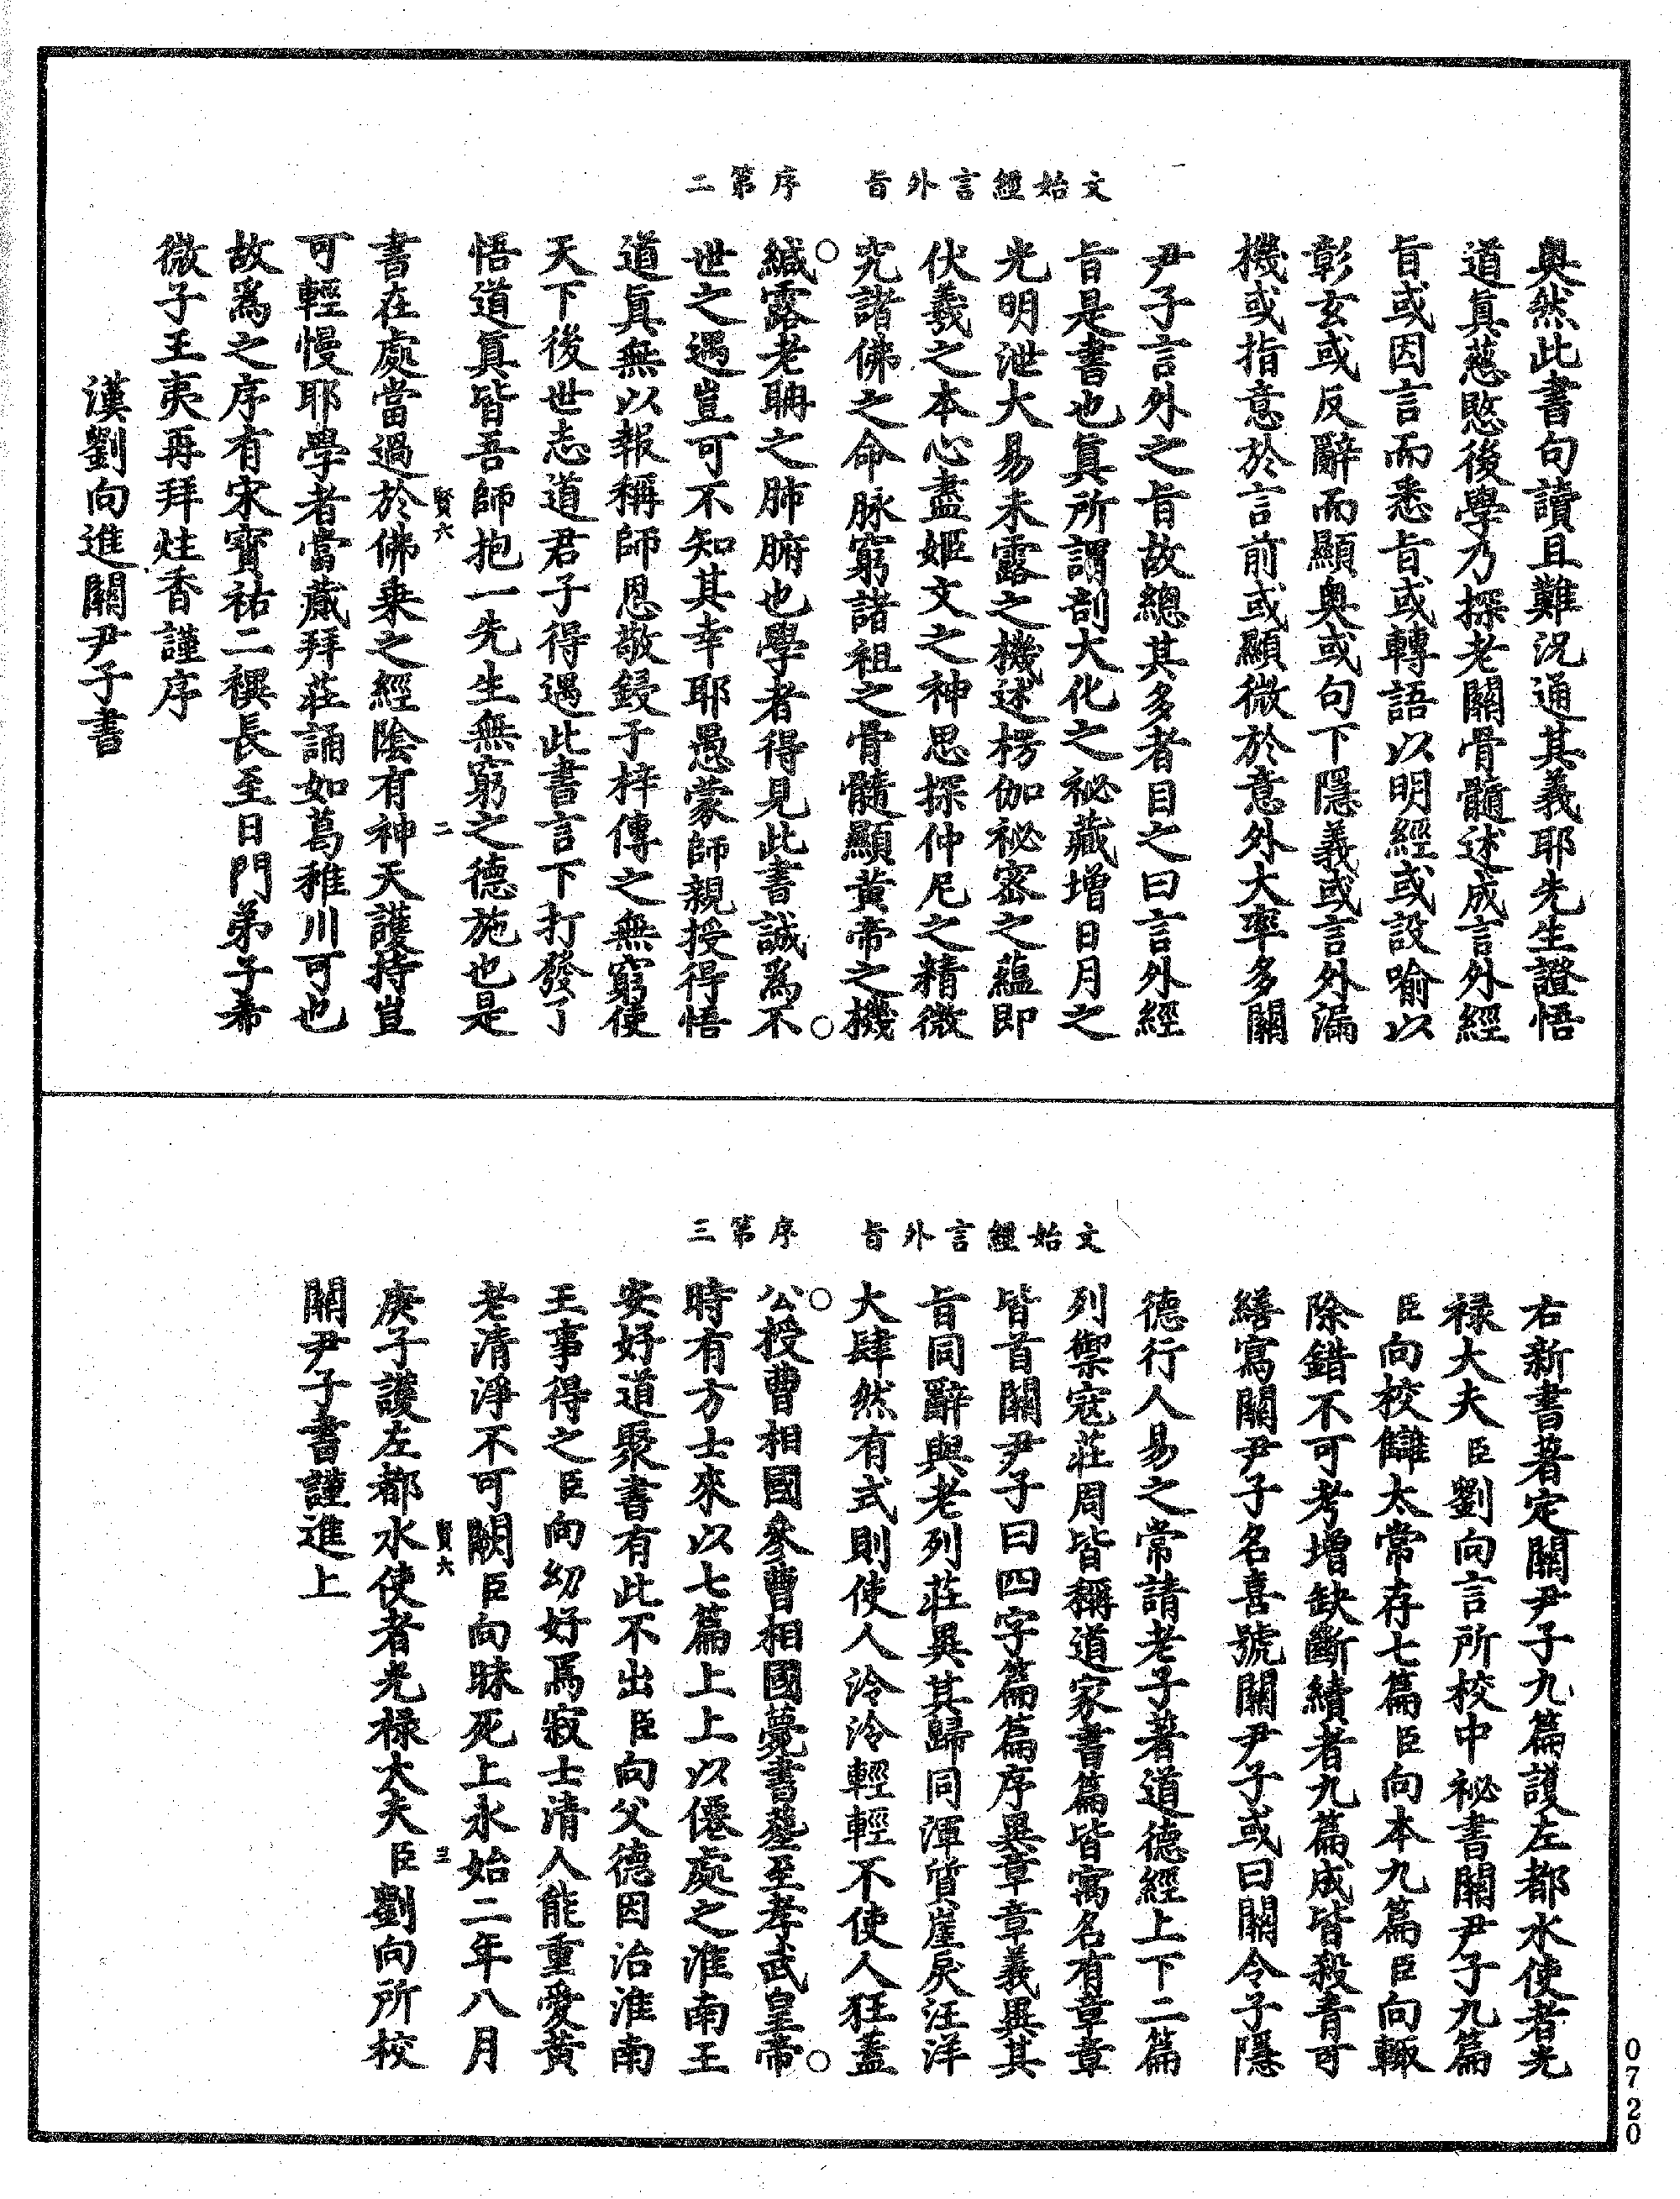 文始經言外旨　序第二
奧然此書句讀且難況通其義耶先生證悟
道眞慈愍後學乃探老關骨髓述成言外經
旨或因言而悉旨或轉語以明經或設喻以
彰玄或反辭而顯奧或句下隱義或言外漏
機或指意於言前或顯微於意外大率多關
尹子言外之旨故總其多者目之曰言外經
旨是書也眞所謂剖大化之祕藏增日月之
光明泄大易未露之機述楞伽祕密之蘊即
伏羲之本心盡姬文之神思探仲尼之精微
究諸佛之命脉窮諸祖之骨髓顯黃帝之機
緘露老聃之肺腑也學者得見此書誠爲不
世之遇豈可不知其幸耶愚蒙師親授得悟
道眞無以報稱師恩敬鋟于梓傳之無窮使
天下後世志道君子得遇此書言下打發了
悟道眞皆吾師抱一先生無窮之德施也是
賢六　二
書在處當過於佛乘之經陰有神天護持豈
可輕慢耶學者當藏拜莊誦如葛稚川可也
故爲之序有宋寶祐二禩長至日門弟子希
微子王夷再拜炷香謹序
漢劉向進關尹子書
文始經言外旨　序第三
右新書著定關尹子九篇護左都水使者光
祿大夫臣劉向言所校中祕書關尹子九篇
臣向校讎太常存七篇臣向本九篇臣向輒
除錯不可考增缺斷續者九篇成皆殺青可
繕寫關尹子名喜號關尹子或曰關令子隱
德行人易之常請老子著道德經上下二篇
列禦寇莊周皆稱道家書篇皆寓名有章章
皆首關尹子曰四字篇篇序異章章義異其
旨同辭與老列莊異其歸同渾質崖戾汪洋
大肆然有式則使人泠泠輕輕不使人狂蓋
公授曹相國參曹相國薨書葬至孝武皇帝
時有方士來以七篇上上以僊處之淮南王
安好道聚書有此不出臣向父德因治淮南
王事得之臣向幼好焉寂士清人能重愛黃
老清淨不可闕臣向昧死上永始二年八月
賢六　三
庚子護左都水使者光祿大夫臣劉向所校
關尹子書謹進上
0720